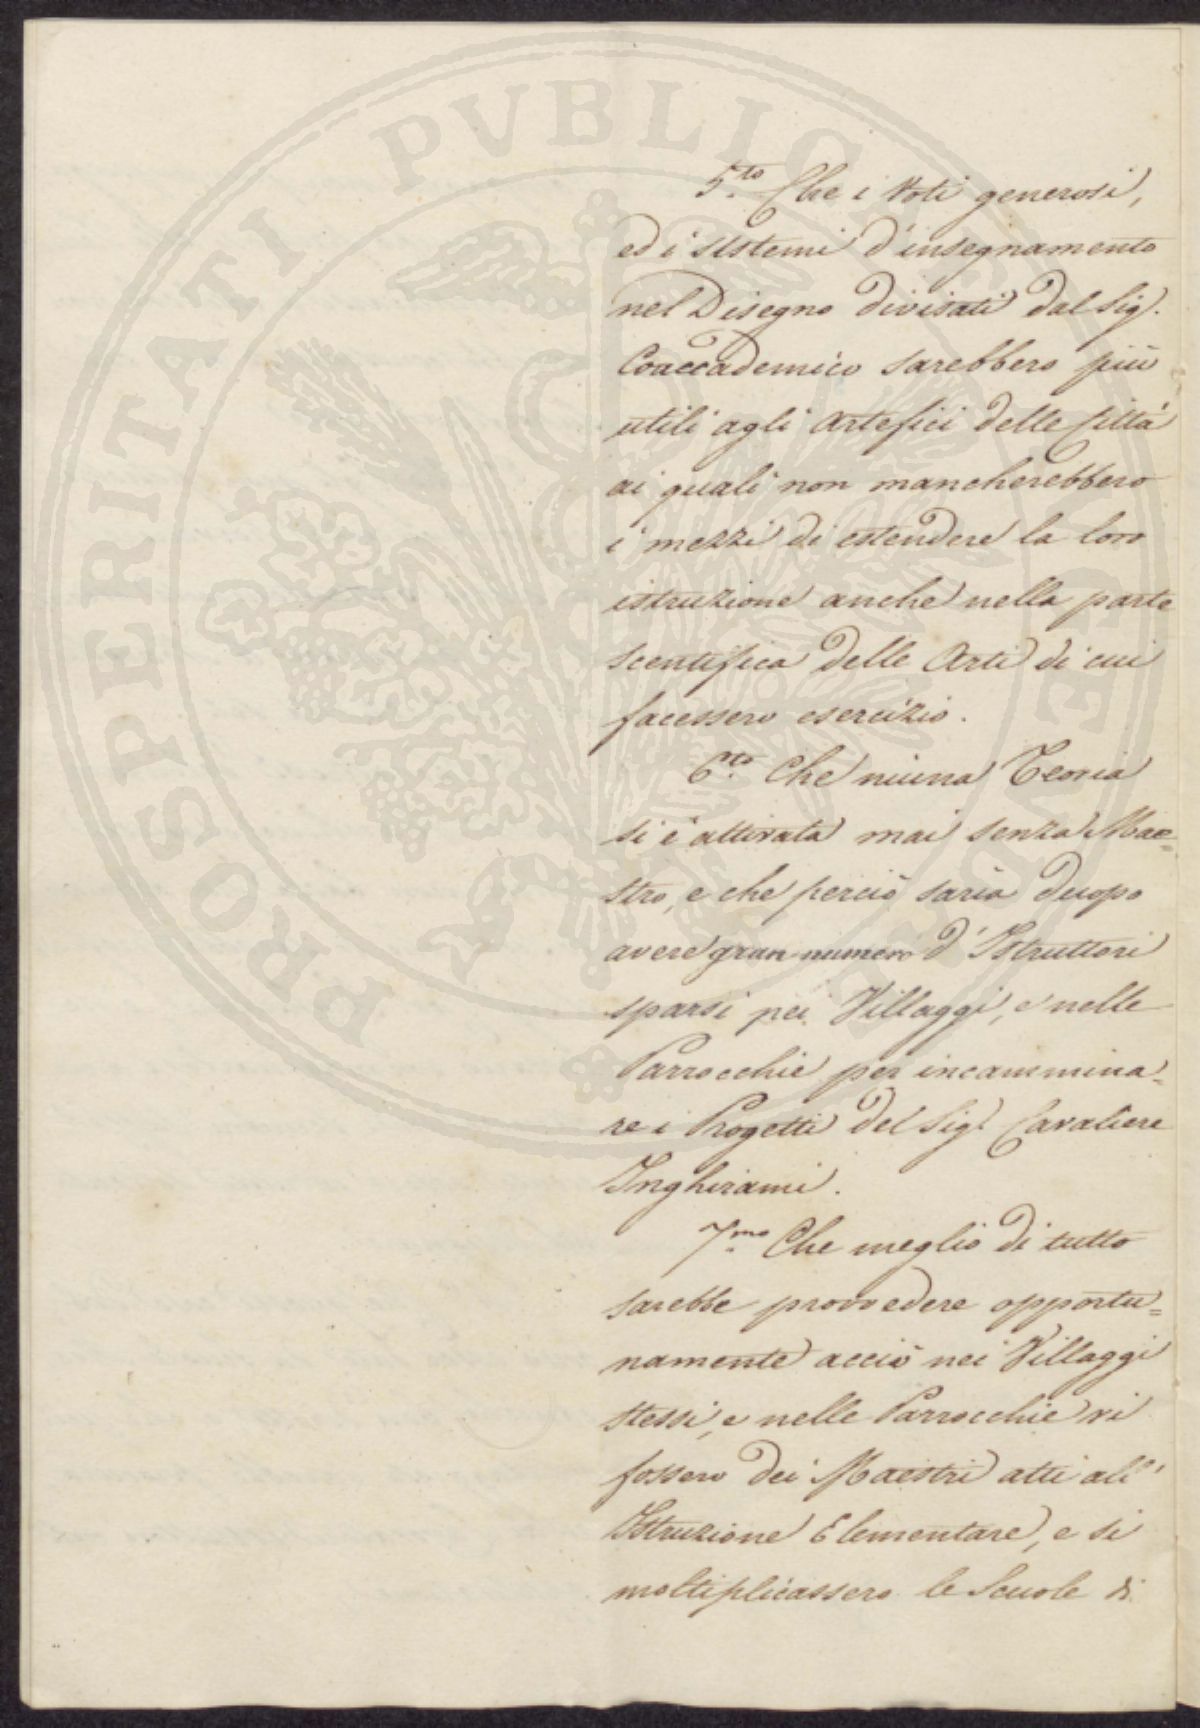 5.to Che i Voti generosi,
ed i sistemi d'insegnamento
nel Disegno divisati dal Sig.
Coaccademico sarebbero più
utili agli Artefici delle Città
ai quali non mancherebbero
i mezzi di estendere la loro
istruzione anche nella parte
scentifica delle Arti di cui
facessero esercizio.
6.to Che niuna Teoria
si è attivata mai senza Mae=
stro, e che perciò saria duopo
avere gran numero d'Istruttori
sparsi pei Villaggi, e nelle
Parrocchie per incammina=
re i Progetti del Sig.r Cavaliere
Inghirami.
7.mo Che meglio di tutto
sarebbe provvedere opportu=
namente acciò nei Villaggi
stessi, e nelle Parrocchie vi
fossero dei Maestri atti all'
Istruzione Elementare, e si
moltiplicassero le Scuole di
PROSPERITATI PVBLICAE